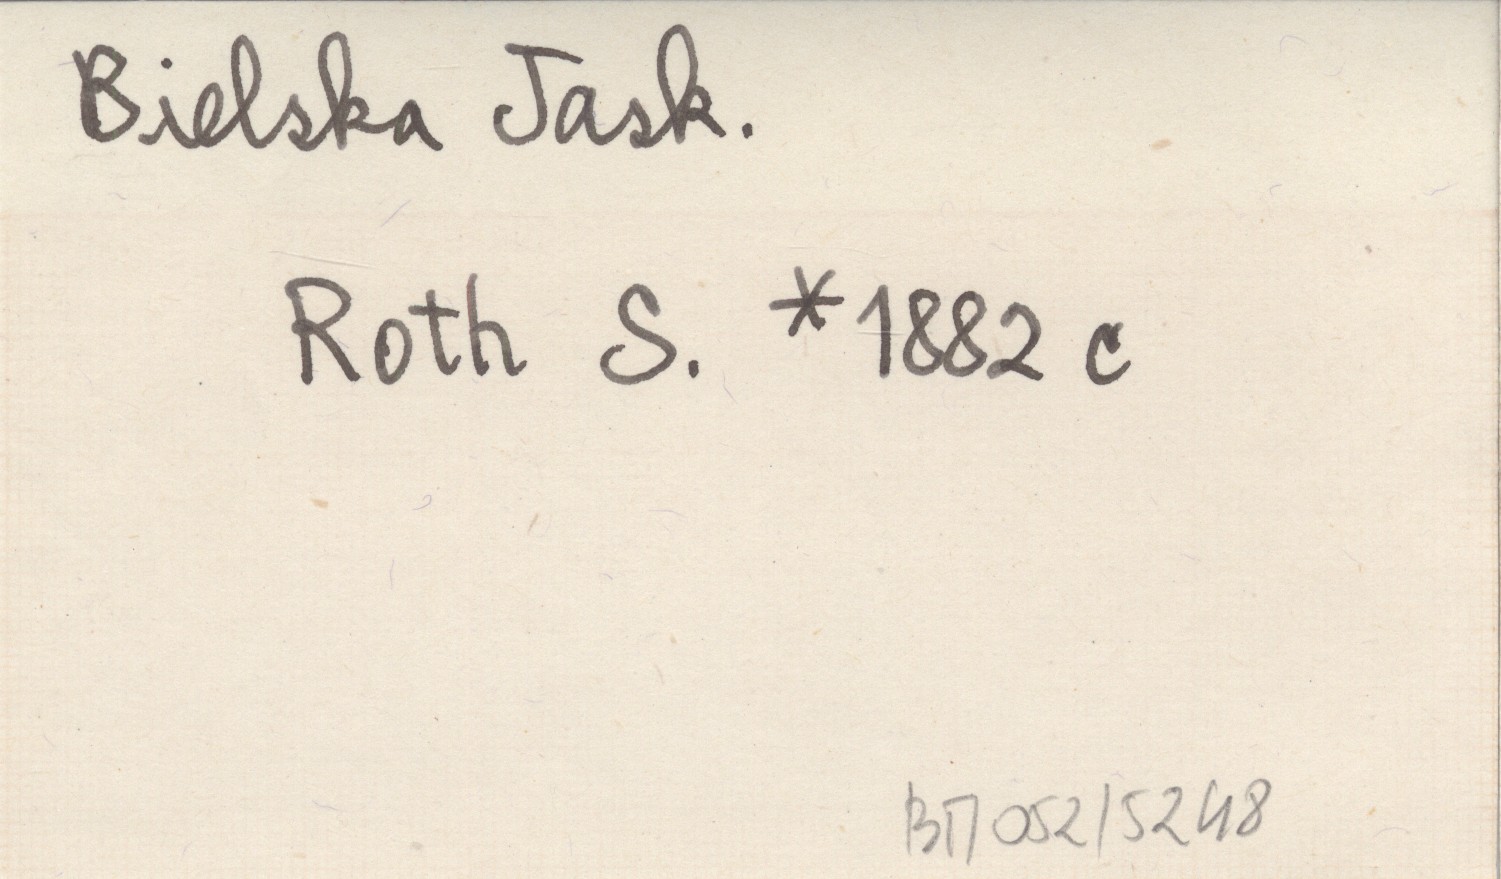 Bielska Jask.
Roth S. *1882 c
ВП 052/5248